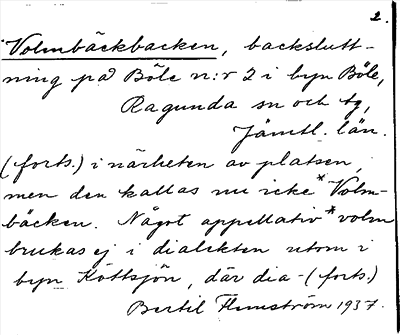 2.
Volmbäckbacken, backslutt-
ning på Böle n:r 2 i byn Böle,
Ragunda sn och tg,
Jämtl. län.
(forts.) i närheten av platsen,
men den kallas nu icke *Volm-
bäcken. Något appellativ *volm
brukas ej i dialekten utom i
byn Köttsjön, där dia- (forts.)
Bertil Flemström 1937.